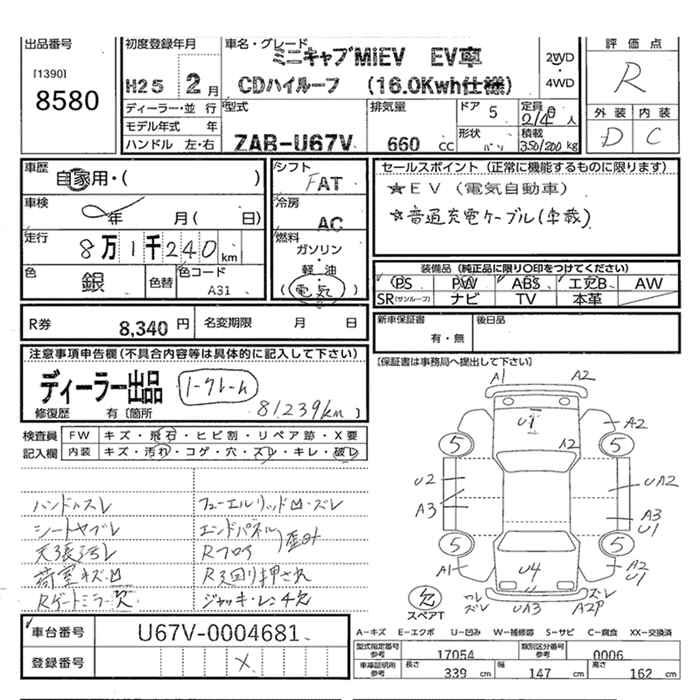 出品番号
[1390]
8580
初度登録年月
H25 2月
車名・グレード
ミニキャブMIEV EV車
CDハイルーフ (16.0Kwh仕様)
2WD
・
4WD
評価点
R
外装 内装
D C
ディーラー・並行
モデル年式 年
ハンドル 左・右
型式
ZAB-U67V
排気量
660 cc
ドア 5
形状 バン
定員
2/4 人
積載
350/200 kg
車歴
自家用・( )
車検
年 月( 日)
走行
8万1千240km
色
銀
色替
色コード
A31
シフト
FAT
冷房
AC
燃料
ガソリン
・
軽・油
(電気)
セールスポイント (正常に機能するものに限ります)
★EV (電気自動車)
☆普通充電ケーブル(車載)
装備品 (純正品に限り○印をつけてください)
PS PW ABS エアB AW
SR(サンルーフ) ナビ TV 本革
R券 8,340円 名変期限 月 日
新車保証書
有・無
後日品
[保証書は事務局へ提出して下さい]
注意事項申告欄(不具合内容等は具体的に記入して下さい)
ディーラー出品 ノークレーム
修復歴 有〔箇所
81239km)
検査員 FW キズ・飛石・ヒビ割・リペア跡・X要
記入欄 内装 キズ・汚れ・コゲ・穴・スレ・キレ・破レ
ハンドルスレ フューエルリッド凹・スレ
シートヤブレ エンドパネル
天張汚レ Rフロア
荷室キズ凹 R廻り押され
Rゲートミラー欠 ジャッキ・レンチ欠
A1 A2
U1
A2
A2
5 5
U2 UA2
A3 A3
U1
5 5
A1 A2
U1
U4
欠
スペアT
ワレ
スレ
UA3
スレ
A2P
車台番号 U67V-0004681
登録番号 X
A-キズ E-エクボ U-凹み W-補修跡 S-サビ C-腐食 XX-交換済
型式指定番号
参考 17054
類別区分番号
参考 0006
車庫証明用
参考
長さ 339 cm 幅 147 cm 高さ 162 cm